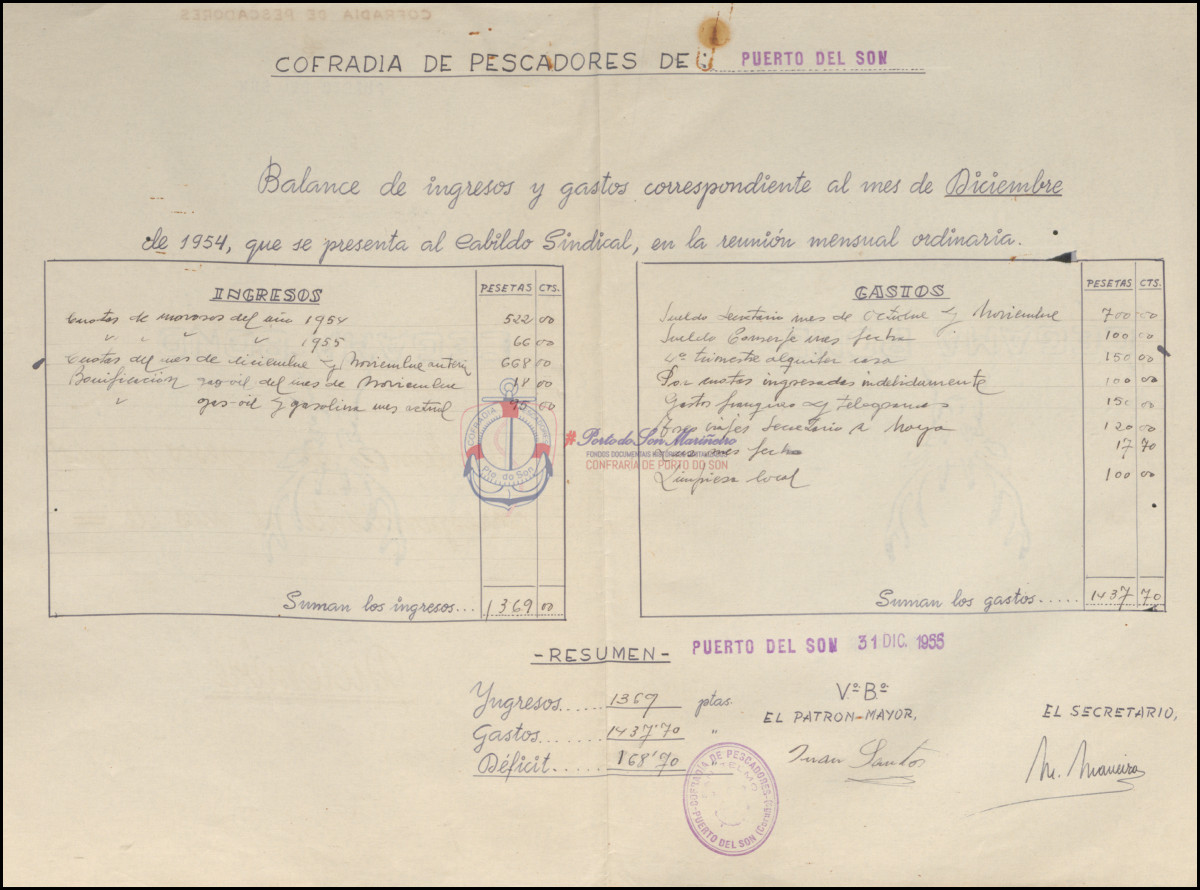 COFRADIA DE PESCADORES
COFRADIA DE PESCADORES DE PUERTO DEL SON
Balance de ingresos y gastos correspondiente al mes de Diciembre
de 1954, que se presenta al Cabildo Sindical, en la reunión mensual ordinaria.
INGRESOS PESETAS CTS.
Cuotas de morosos del año 1954 522 00
" " " " 1955 66 00
Cuotas del mes de diciembre y Noviembre 668 00
Bonificación gas-oil del mes de Noviembre 18 00
" gas-oil y gasolina mes actual 95 00
Suman los ingresos... 1369 00
GASTOS PESETAS CTS.
Sueldo Secretario mes de Octubre y Noviembre 700 00
Sueldo Conserje mes fecha 100 00
4º trimestre alquiler casa 150 00
Por cuotas ingresadas indebidamente 100 00
Gastos franqueo y telegramas 150 00
viajes Secretario a Noya 120 00
mes fecha 17 70
Limpieza local 100 00
Suman los gastos..... 1437 70
COFRADIA PESCADORES
Pto. do Son
#Porto do Son Mariñeiro
FONDOS DOCUMENTAIS HISTÓRICOS DIXITALIZADOS
CONFRARÍA DE PORTO DO SON
-RESUMEN-
PUERTO DEL SON 31 DIC. 1955
Yngresos...... 1369 ptas.
Gastos....... 1437'70 "
Déficit..... 168'70 "
Vº Bº
EL PATRON-MAYOR,
Juan Santos
EL SECRETARIO,
M. Maneiro
COFRADIA DE PESCADORES
PUERTO DEL SON (Coruña)